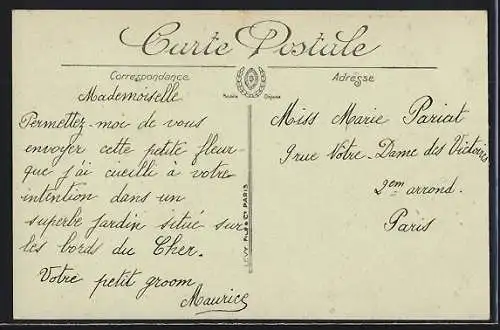 Carte Postale
Correspondance
Adresse
Mademoiselle
Permettez-moi de vous
envoyer cette petite fleur
que j'ai cueilli à votre
intention dans un
superbe jardin situé sur
les bords du Cher.
Votre petit groom
Maurice
LEVY Fils & Cie PARIS
Miss Marie Pariat
9 rue Notre-Dame des Victoires
2em arrond.
Paris